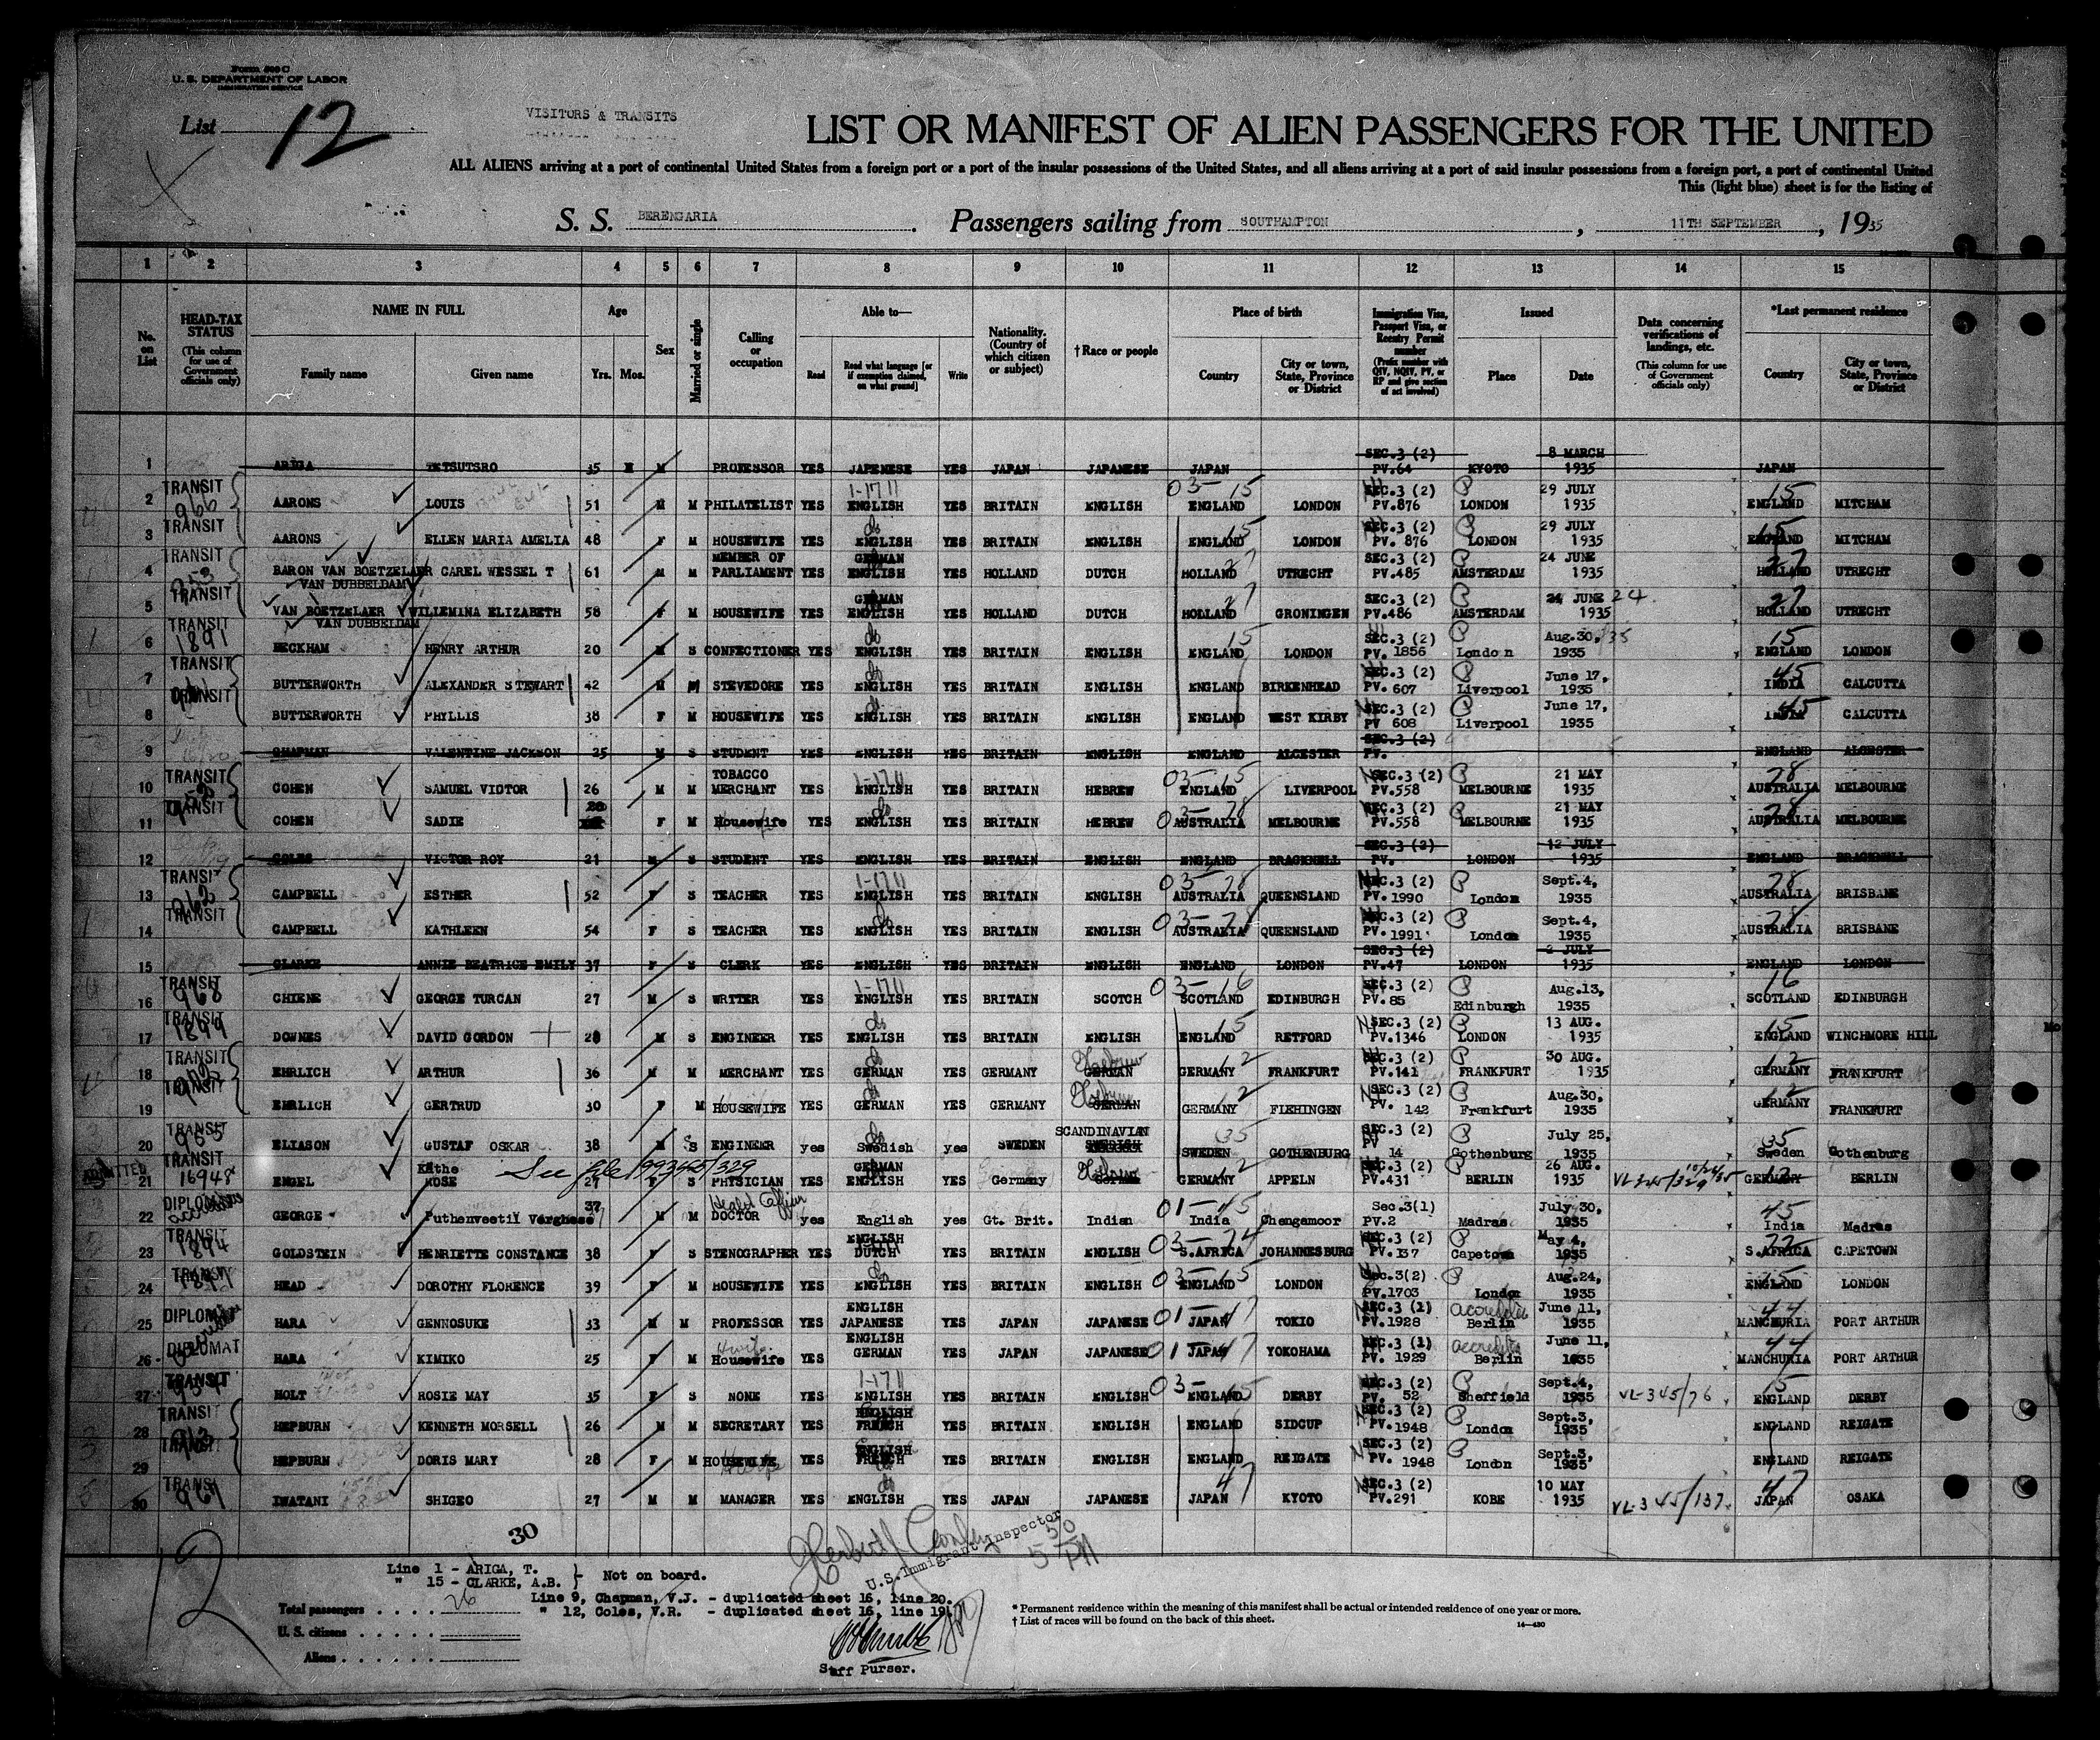 Form 500 C
U. S. DEPARTMENT OF LABOR
IMMIGRATION SERVICE
List 12
VISITORS & TRANSITS
LIST OR MANIFEST OF ALIEN PASSENGERS FOR THE UNITED
ALL ALIENS arriving at a port of continental United States from a foreign port or a port of the insular possessions of the United States, and all aliens arriving at a port of said insular possessions from a foreign port, a port of continental United
This (light blue) sheet is for the listing of
S. S. BERENGARIA. Passengers sailing from SOUTHAMPTON, 11TH SEPTEMBER, 1935
1 2 3 4 5 6 7 8 9 10 11 12 13 14 15
No. on List
HEAD-TAX STATUS (This column for use of Government officials only)
NAME IN FULL Family name Given name
Age Yrs. Mos.
Sex
Married or single
Calling or occupation
Able to— Read Read what language [or if exemption claimed, on what ground] Write
Nationality. (Country of which citizen or subject)
†Race or people
Place of birth Country City or town, State, Province or District
Immigration Visa, Passport Visa, or Reentry Permit number (Prefix number with QIV, NQIV, PV, or RP and give section of act involved)
Issued Place Date
Data concerning verifications of landings, etc. (This column for use of Government officials only)
*Last permanent residence Country City or town, State, Province or District
1 ARIGA TETSUTSRO 35 M M PROFESSOR YES JAPENESE YES JAPAN JAPANESE JAPAN SEC.3 (2) PV.64 KYOTO 8 MARCH 1935 JAPAN
2 TRANSIT 966 AARONS LOUIS 51 M M PHILATELIST YES 1-1711 ENGLISH YES BRITAIN ENGLISH 03-15 ENGLAND LONDON SEC.3 (2) PV.876 P LONDON 29 JULY 1935 15 ENGLAND MITCHAM
3 TRANSIT AARONS ELLEN MARIA AMELIA 48 F M HOUSEWIFE YES do ENGLISH YES BRITAIN ENGLISH 15 ENGLAND LONDON SEC.3 (2) PV. 876 P LONDON 29 JULY 1935 15 ENGLAND MITCHAM
4 TRANSIT BARON VAN BOETZELAER VAN DUBBELDAM CAREL WESSEL T 61 M M MEMBER OF PARLIAMENT YES GERMAN ENGLISH YES HOLLAND DUTCH 27 HOLLAND UTRECHT SEC.3 (2) PV.485 P AMSTERDAM 24 JUNE 1935 27 HOLLAND UTRECHT
5 TRANSIT VAN BOETZELAER VAN DUBBELDAM WILLEMINA ELIZABETH 58 F M HOUSEWIFE YES GERMAN ENGLISH YES HOLLAND DUTCH 27 HOLLAND GRONINGEN SEC.3 (2) PV.486 P AMSTERDAM JUNE 24 1935 27 HOLLAND UTRECHT
6 TRANSIT 1891 BECKHAM HENRY ARTHUR 20 M S CONFECTIONER YES do ENGLISH YES BRITAIN ENGLISH 15 ENGLAND LONDON SEC.3 (2) PV. 1856 P London Aug.30, 35 1935 15 ENGLAND LONDON
7 TRANSIT BUTTERWORTH ALEXANDER STEWART 42 M M STEVEDORE YES do ENGLISH YES BRITAIN ENGLISH ENGLAND BIRKENHEAD SEC.3 (2) PV. 607 P Liverpool June 17, 1935 45 INDIA CALCUTTA
8 TRANSIT BUTTERWORTH PHYLLIS 38 F M HOUSEWIFE YES do ENGLISH YES BRITAIN ENGLISH ENGLAND WEST KIRBY SEC.3 (2) PV 608 P Liverpool June 17, 1935 45 INDIA CALCUTTA
9 CHAPMAN VALENTINE JACKSON 25 M S STUDENT YES ENGLISH YES BRITAIN ENGLISH ENGLAND ALCESTER SEC.3 (2) PV. ENGLAND ALCESTER
10 TRANSIT COHEN SAMUEL VICTOR 26 M M TOBACCO MERCHANT YES 1-1711 ENGLISH YES BRITAIN HEBREW 03-15 ENGLAND LIVERPOOL SEC.3 (2) PV.558 P MELBOURNE 21 MAY 1935 78 AUSTRALIA MELBOURNE
11 TRANSIT COHEN SADIE F M Housewife YES do ENGLISH YES BRITAIN HEBREW 03-78 AUSTRALIA MELBOURNE SEC.3 (2) PV.558 P MELBOURNE 21 MAY 1935 78 AUSTRALIA MELBOURNE
12 COLES VICTOR ROY 21 M S STUDENT YES ENGLISH YES BRITAIN ENGLISH ENGLAND BRACKNELL SEC.3 (2) PV. LONDON 12 JULY 1935 ENGLAND BRACKNELL
13 TRANSIT 962 CAMPBELL ESTHER 52 F S TEACHER YES 1-1711 ENGLISH YES BRITAIN ENGLISH 03-78 AUSTRALIA QUEENSLAND SEC.3 (2) PV. 1990 P London Sept.4, 1935 78 AUSTRALIA BRISBANE
14 TRANSIT CAMPBELL KATHLEEN 54 F S TEACHER YES do ENGLISH YES BRITAIN ENGLISH 03-78 AUSTRALIA QUEENSLAND SEC.3 (2) PV. 1991 P London Sept.4, 1935 78 AUSTRALIA BRISBANE
15 CLARKE ANNIE BEATRICE EMILY 37 F S CLERK YES ENGLISH YES BRITAIN ENGLISH ENGLAND LONDON SEC.3 (2) PV.47 LONDON 2 JULY 1935 ENGLAND LONDON
16 TRANSIT 968 CHIENE GEORGE TURCAN 27 M S WRTTER YES 1-1711 ENGLISH YES BRITAIN SCOTCH 03-16 SCOTLAND EDINBURGH SEC.3 (2) PV. 85 P Edinburgh Aug.13, 1935 16 SCOTLAND EDINBURGH
17 TRANSIT 1899 DOWNES DAVID GORDON 28 M S ENGINEER YES do ENGLISH YES BRITAIN ENGLISH 15 ENGLAND RETFORD SEC.3 (2) PV.1346 P LONDON 13 AUG. 1935 15 ENGLAND WINCHMORE HILL
18 TRANSIT EHRLICH ARTHUR 36 M M MERCHANT YES do GERMAN YES GERMANY Hebrew GERMAN 12 GERMANY FRANKFURT SEC.3 (2) PV.141 P FRANKFURT 30 AUG. 1935 12 GERMANY FRANKFURT
19 TRANSIT EHRLICH GERTRUD 30 F M HOUSEWIFE YES do GERMAN YES GERMANY Hebrew GERMAN 2 GERMANY FLEHINGEN SEC.3 (2) PV. 142 P Frankfurt Aug.30, 1935 12 GERMANY FRANKFURT
20 TRANSIT 965 ELIASON GUSTAF OSKAR 38 M S ENGINEER yes do Swedish yes SWEDEN SCANDINAVIAN SWEDISH 35 SWEDEN GOTHENBURG SEC.3 (2) PV 14 P Gothenburg July 25, 1935 35 Sweden Gothenburg
21 ADMITTED TRANSIT 16948 ENGEL Käthe ROSE See file 993445/329 27 F S PHYSICIAN YES GERMAN ENGLISH YES Germany Hebrew 12 GERMANY APPELN SEC.3 (2) PV.431 P BERLIN 26 AUG. 1935 VL-345/329 10/24/35 12 GERMANY BERLIN
22 DIPLOMAT GEORGE Puthenveetil Varghese 37 M M Health Officer DOCTOR yes English yes Gt. Brit. Indian 01-45 India Chengamoor Sec.3(1) PV.2 Madras July 30, 1935 45 India Madras
23 TRANSIT 1894 GOLDSTEIN HENRIETTE CONSTANCE 38 F S STENOGRAPHER YES ENGLISH DUTCH YES BRITAIN ENGLISH 03-74 S.AFRICA JOHANNESBURG SEC.3 (2) PV.137 P Capetown May 4, 1935 S.AFRICA CAPETOWN
24 TRANSIT 1897 HEAD DOROTHY FLORENCE 39 F M HOUSEWIFE YES do ENGLISH YES BRITAIN ENGLISH 03-15 ENGLAND LONDON Sec.3(2) PV.1703 P London Aug.24, 1935 15 ENGLAND LONDON
25 DIPLOMAT HARA GENNOSUKE 33 M M PROFESSOR YES ENGLISH JAPANESE YES JAPAN JAPANESE 01-47 JAPAN TOKIO SEC.3 (1) PV.1928 Berlin June 11, 1935 44 MANCHURIA PORT ARTHUR
26 DIPLOMAT HARA KIMIKO 25 F M Housewife YES ENGLISH GERMAN YES JAPAN JAPANESE 01-47 JAPAN YOKOHAMA SEC.3 (1) PV. 1929 Berlin June 11, 1935 44 MANCHURIA PORT ARTHUR
27 TRANSIT HOLT ROSIE MAY 35 F S NONE YES 1-1711 ENGLISH YES BRITAIN ENGLISH 03-15 ENGLAND DERBY SEC.3 (2) PV. 52 P Sheffield Sept.4, 1935 VL-345/76 15 ENGLAND DERBY
28 TRANSIT 963 HEPBURN KENNETH MORSELL 26 M M SECRETARY YES ENGLISH FRENCH YES BRITAIN ENGLISH ENGLAND SIDCUP SEC.3 (2) PV.1948 P London Sept.3, 1935 ENGLAND REIGATE
29 TRANSIT HEPBURN DORIS MARY 28 F M HOUSEWIFE YES ENGLISH FRENCH YES BRITAIN ENGLISH ENGLAND REIGATE SEC.3 (2) PV. 1948 P London Sept.3, 1935 ENGLAND REIGATE
30 TRANSIT 967 IWATANI SHIGEO 27 M M MANAGER YES do ENGLISH YES JAPAN JAPANESE 47 JAPAN KYOTO SEC.3 (2) PV.291 KOBE 10 MAY 1935 VL-345/137 47 JAPAN OSAKA
30
12
U.S. Immigrant Inspector
5 50 PM
Line 1 - ARIGA, T.
" 15 - CLARKE, A.B. } Not on board.
Line 9, Chapman, V.J. - duplicated sheet 16, line 20.
" 12, Coles, V.R. - duplicated sheet 16, line 19.
Total passengers . . . . 26
U. S. citizens . . . . .
Aliens . . . . . .
Staff Purser.
* Permanent residence within the meaning of this manifest shall be actual or intended residence of one year or more.
† List of races will be found on the back of this sheet.
14—430